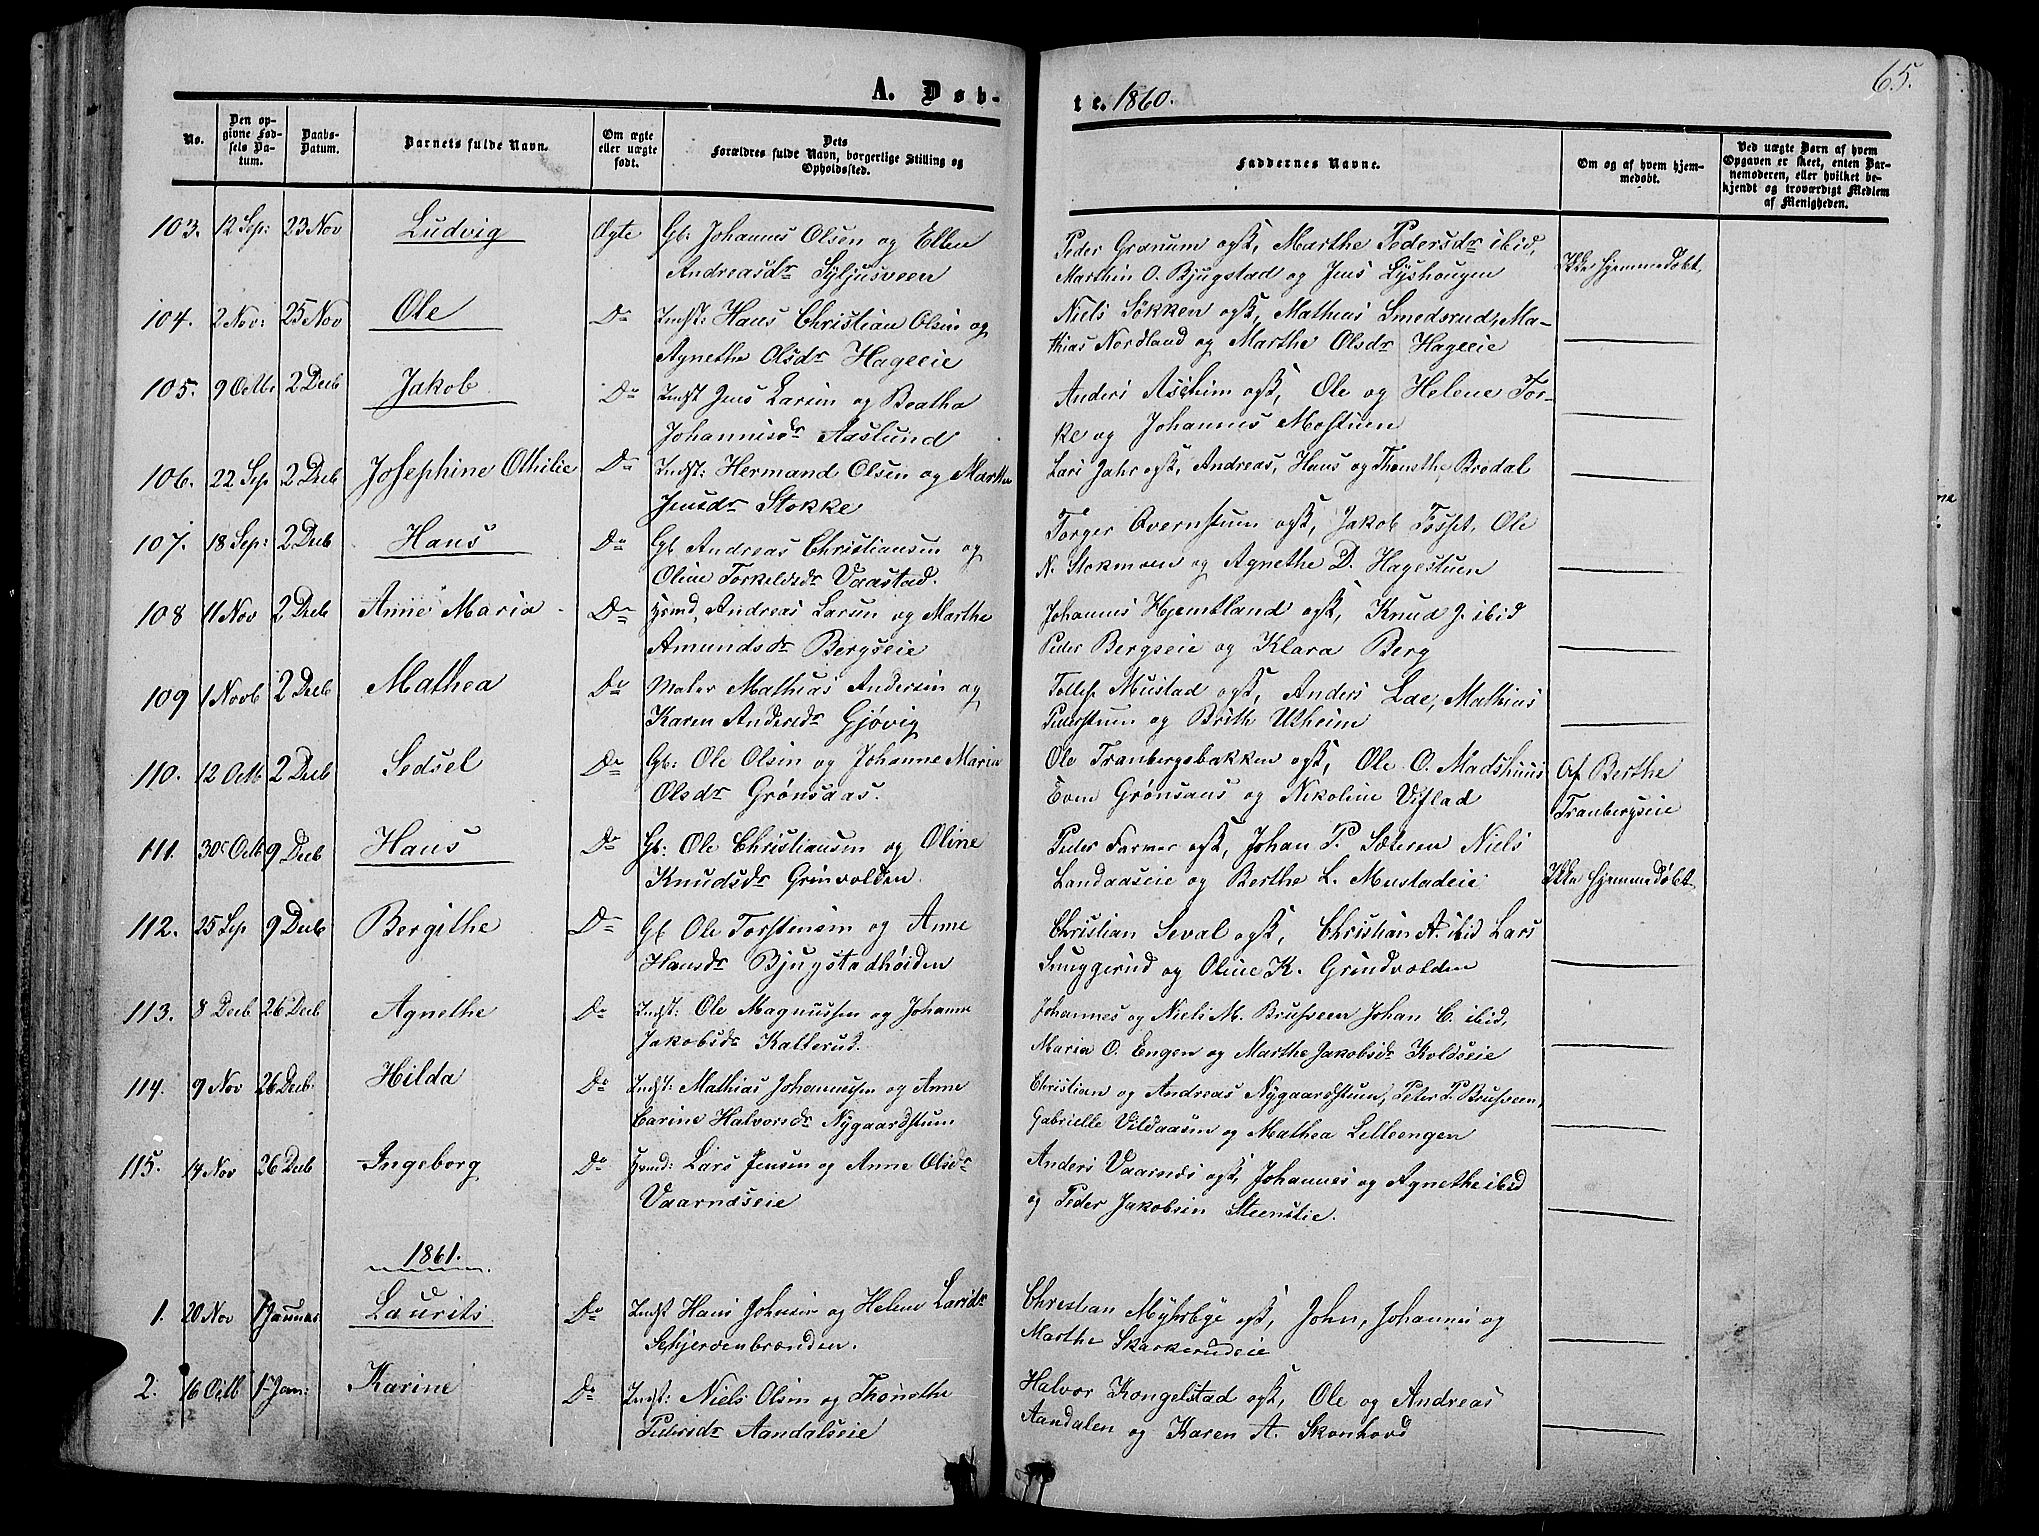 65.
A. Døb-
te. 1860.
No.
Den op-
givne Fød-
sels Da-
tum.
Daabs-
Datum.
Barnets fulde Navn.
Om ægte
eller uægte
født.
Dets
Forældres fulde Navn, borgerlige Stilling og
Opholdssted.
Faddernes Navne.
Om og af hvem hjem-
medøbt.
Ved uægte Børn af hvem
Opgaven er skeet, enten Bar-
nemoderen, eller hvilket be-
kjendt og troværdigt Medlem
af Menigheden.
103. 12 Sep: 23 Nov Ludvig Ægte Gb: Johannes Olsen og Ellen
Andreasdr Syljusveen
Peder Granum ogsk, Marthe Pedersdr ibid,
Marthin O. Bjugstad og Jens Lyshougen
Ikke hjemmedøbt
104. 2 Nov: 25 Nov Ole Do Indst: Hans Christian Olsen og
Agnethe Olsdr Hageeie
Niels Søkken ogsk, Mathias Smedsrud, Ma-
thias Nordland og Marthe Olsdr Hageeie
105. 9 Octb 2 Decb Jakob Do Indst Jens Larsen og Beatha
Johannesdr Aaslund
Anders Aschim ogsk, Ole og Helene Tor-
ke og Johannes Mostuen
106. 22 Sep 2 Decb Josephine Othilie Do Indst: Hermand Olsen og Marthe
Jensdr Stokke
Lars Jahr ogsk, Andreas, Hans og Thonethe Brødal
107. 18 Sep: 2 Decb Hans Do Gb Andreas Christiansen og
Oline Torkeldsdr Vaastad.
Torger Overnstuen ogsk, Jakob Fosset, Ole
N. Stokmoen og Agnethe D. Hagestuen
108 11 Nov 2 Decb Anne Maria Do Hmd, Andreas Larsen og Marthe
Amundsdr Bergseie
Johannes Hjemtland ogsk, Knud J. ibid
Peder Bergseie og Klara Berg
109 1 Novb 2 Decb Mathea Do Maler Mathias Andersen og
Karen Andersdr Gjøvig
Tollef Mustad ogsk, Anders Lae, Mathias
Pederstuen og Brith Utheim
110. 12 Octb 2 Decb Sedsel Do Gb: Ole Olsen og Johanne Maria
Olsdr Grønsaas.
Ole Tranbergsbakken ogsk, Ole O. Madshuus
Even Grønsaas og Nikoline Viflad
Af Berthe
Tranbergseie
111. 30 Octb 9 Decb Hans Do Gb: Ole Christiansen og Oline
Knudsdr Grinvolden.
Peder Farmer ogsk, Johan P. Sæteren Niels
Landaaseie og Berthe L. Mustadeie
Ikke hjemmedøbt
112. 25 Sep 9 Decb Bergithe Do Gb Ole Torstensen og Anne
Hansdr Bjugstadhøiden
Christian Seval ogsk, Christian A. ibid Lars
Snuggerud og Oline K. Grindvolden
113. 8 Decb 26 Decb Agnethe Do Indst: Ole Magnussen og Johanne
Jakobsdr Kalterud.
Johannes og Niels M. Brusveen Johan C. ibid,
Maria O. Engen og Marthe Jakobsdr Koldseie
114. 9 Nov 26 Decb. Hilda Do Indst: Mathias Johannessen og Anne
Carine Halvorsdr Nygaardstuen
Christian og Andreas Nygaardstuen, Peter P. Brusveen,
Gabrielle Vildaasen og Mathea Lilleengen
115. 14 Nov 26 Decb Ingeborg Do Hmd: Lars Jensen og Anne Olsdr
Vaarnæseie
Anders Vaarnæs ogsk, Johannes og Agnethe ibid
og Peder Jakobsen Steenseie.
1861.
1. 20 Nov 1 Januar Laurits Do Indst Hans Johnsen og Helene Larsdr
Schjerdenbrænden.
Christian Myhrbye ogsk, John, Johannes og
Marthe Skarkerudeie
2. 16 Octb 1 Jan: Karine Do Indst: Niels Olsen og Thonethe
Pedersdr Aandalseie
Halvor Kongelstad ogsk, Ole og Andreas
Aandalen og Karen A. Skonhovd